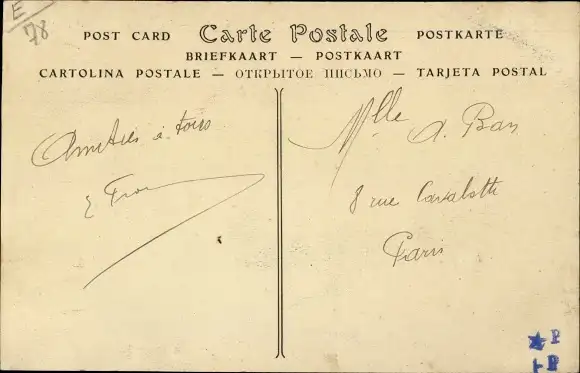 E
78
POST CARD Carte Postale POSTKARTE
BRIEFKAART — POSTKAART
CARTOLINA POSTALE — ОТКРЫТОЕ ПИСЬМО — TARJETA POSTAL
Amitiés à tous
E
Mlle A. Bas
8 rue Cavalotti
Paris